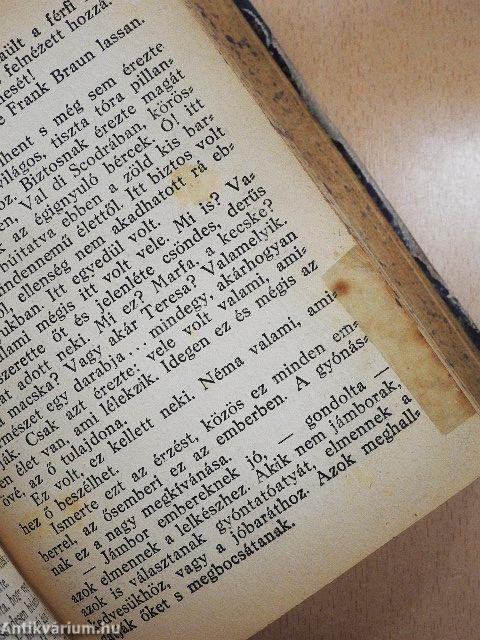 aült a férfi
felnézett hozzá.
esét!
Frank Braun lassan.
lhent s még sem érezte
világos, tiszta tóra pillan-
oz. Biztosnak érezte magát
en, Val di Scodrában, körös-
k az égignyuló bércek. Ó! itt
bújtatva ebben a zöld kis bar-
indennemű élettől. Itt biztos volt
ol, ellenség nem akadhatott rá eb-
ukban. Itt egyedül volt.
alami mégis itt volt vele. Mi is? Va-
szerette őt és jelenléte csöndes, derüs
at adott neki. Mi ez? Marfa, a kecske?
macska? Vagy akár Teresa? Valamelyik.
rmészet egy darabja... mindegy, akárhogyan
ják. Csak azt érezte: vele volt valami, ami-
en élet van, ami lélekzik. Idegen ez és mégis az
övé, az ő tulajdona.
Ez volt, ez kellett neki. Néma valami, ami-
hez ő beszélhet.
Ismerte ezt az érzést, közös ez minden em-
berrel, az ősemberi ez az emberben. A gyónás-
nak ez a nagy megkívánása.
— Jámbor embereknek jó, — gondolta —
azok elmennek a lelkészhez. Akik nem jámborak,
azok is választanak gyóntatóatyát, elmennek a
kedvesükhöz, vagy a jóbaráthoz. Azok meghall-
ják őket s megbocsátanak.
Antikvárium.hu